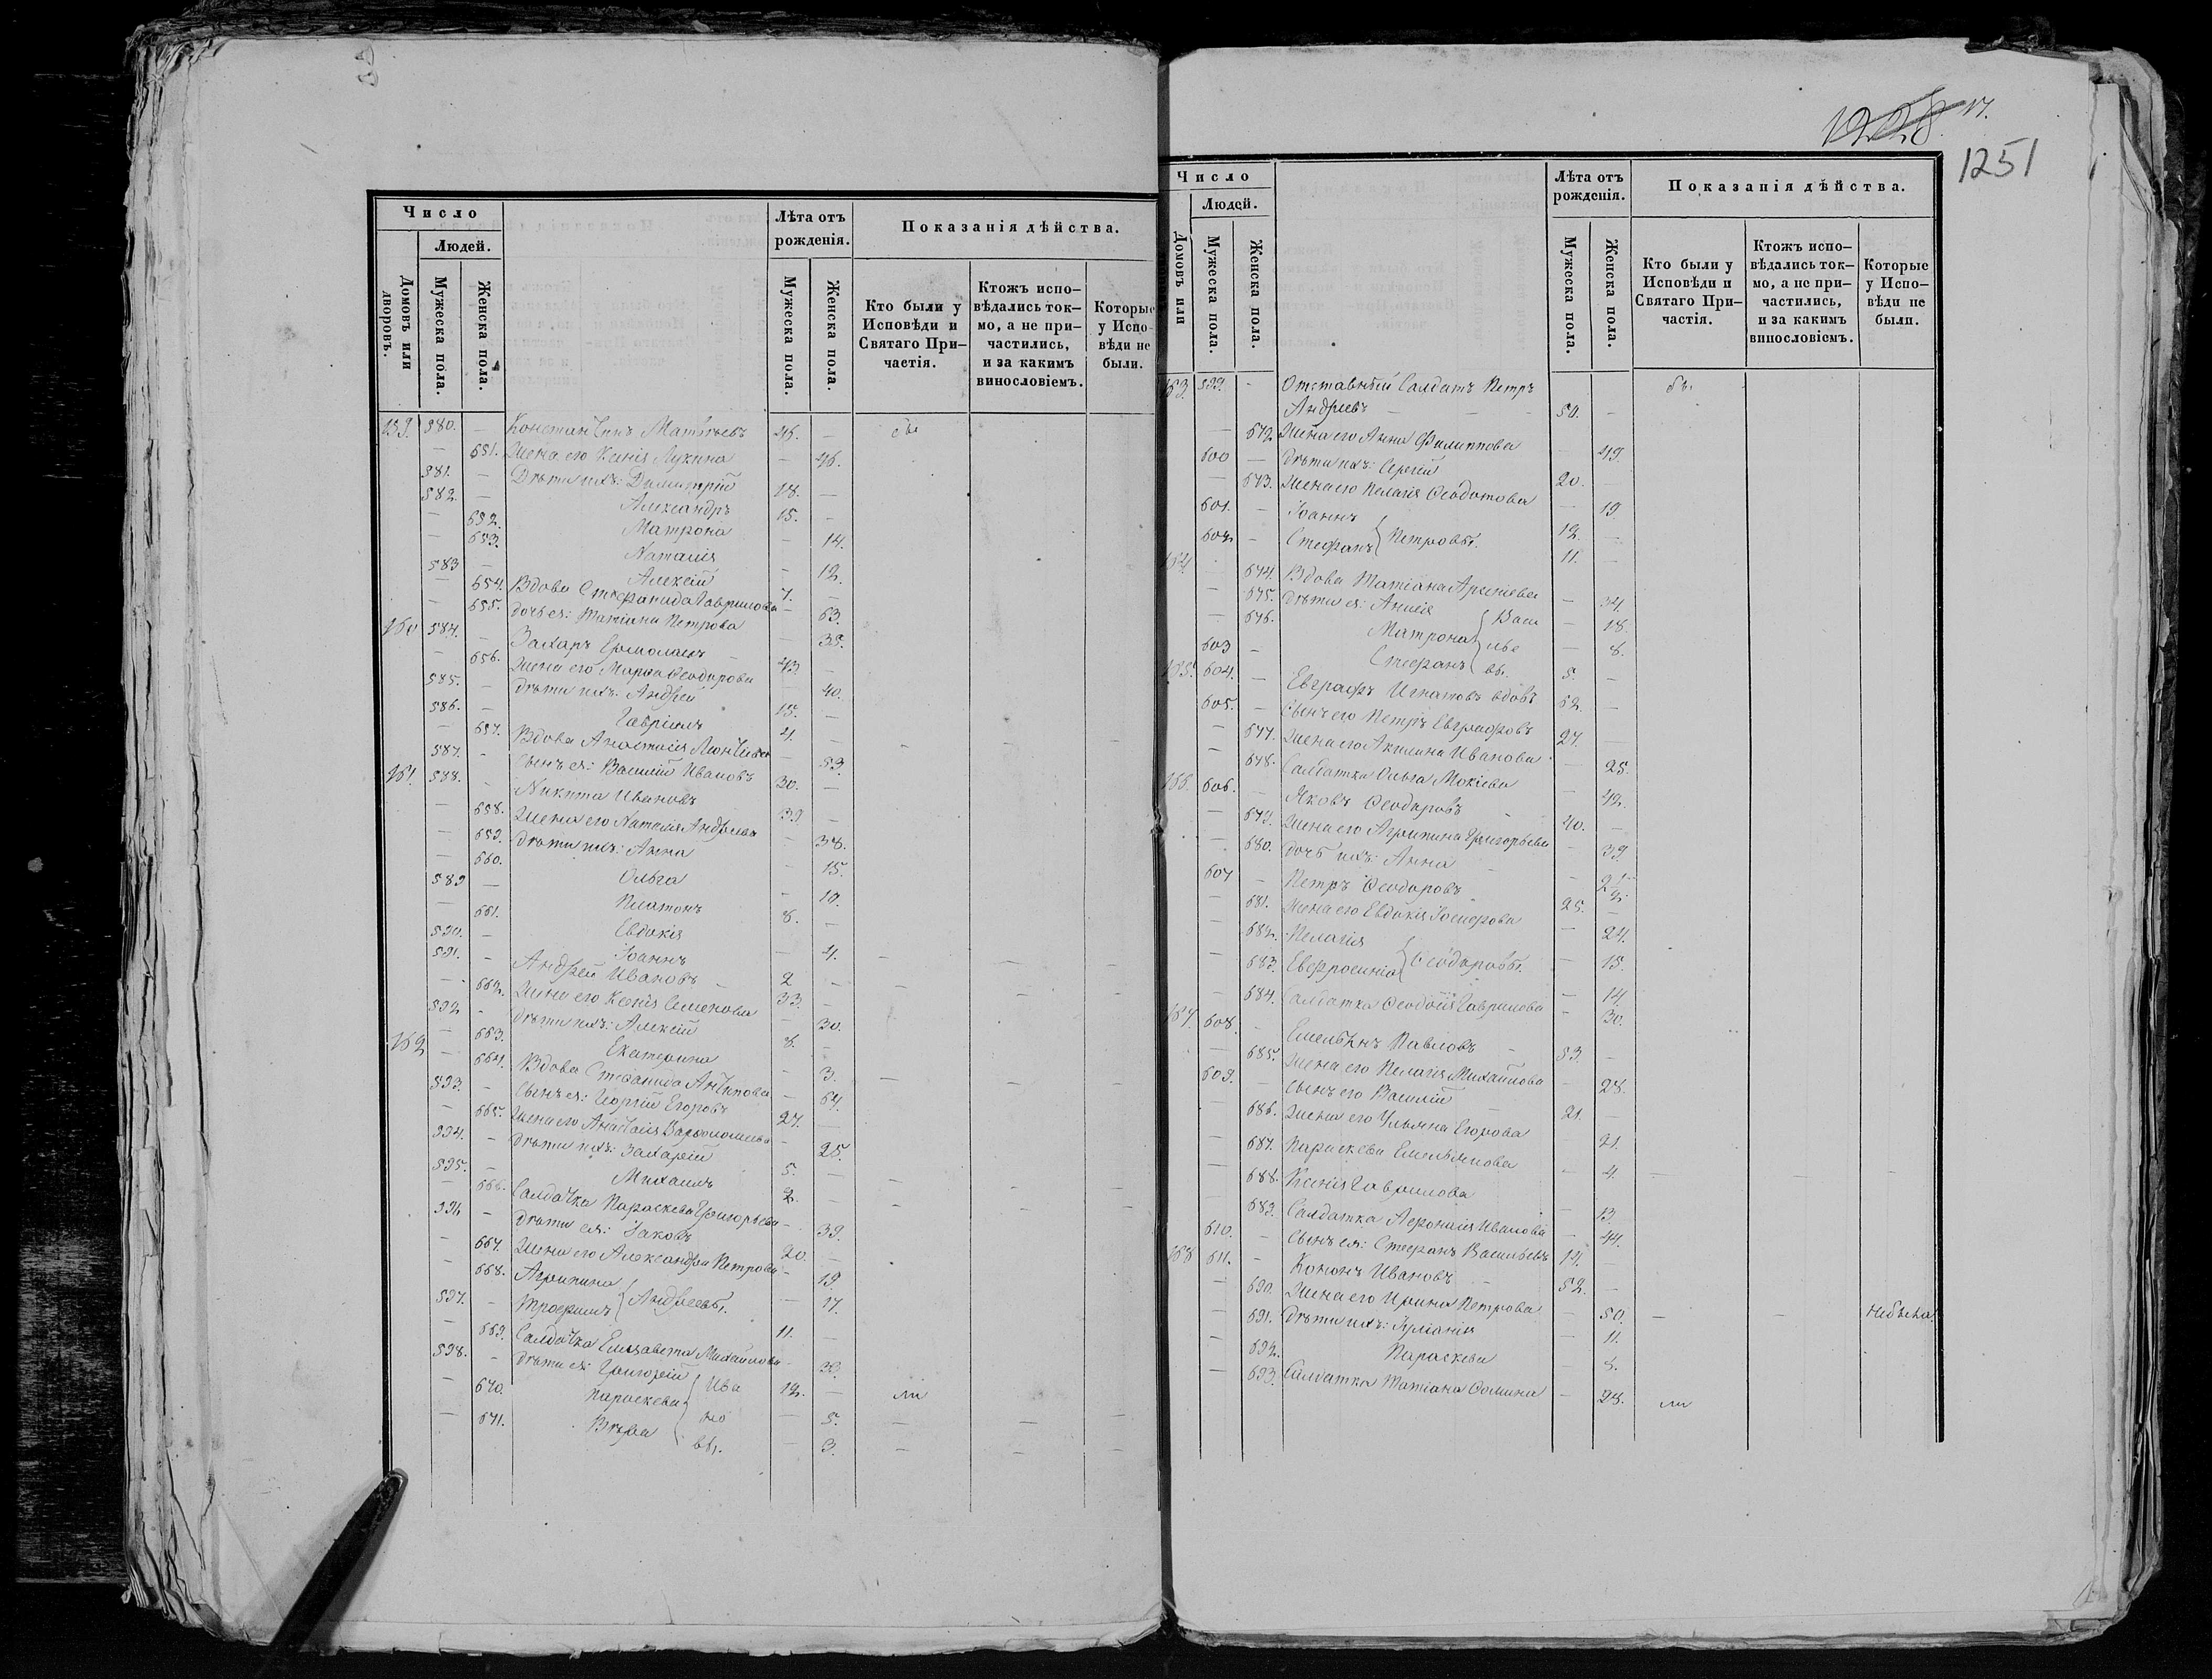 Число
Людей.
Домовъ или дворовъ.
Мужеска пола.
Женска пола.
Лѣта отъ рожденія.
Мужеска пола.
Женска пола.
Показанія дѣйства.
Кто были у Исповѣди и Святаго При-
частія.
Ктожъ испо-
вѣдались ток-
мо, а не при-
частились,
и за какимъ
винословіемъ.
Которые
у Испо-
вѣди не
были.
159. 580. — Константинъ Матвѣевъ 46. — бы
— 651. Жена его Ксенія Лукина — 46.
581. — Дѣти ихъ: Димитрій 18. —
582. — Александръ 15. —
— 652. Матрона — 14.
— 653. Наталія — 12.
583 — Алексій 7. —
— 654. Вдова Стефанида Гаврилова — 63.
— 655. Дочь ея: Татіана Петрова — 35.
160 584. — Захаръ Ермолаевъ 43. —
— 656. Жена его Марѳа Ѳеодорова — 40.
585. — Дѣти ихъ: Андрей 15. —
586. — Гавріилъ 4. —
— 657. Вдова Анастасія Леонтьева — 53.
587. — Сынъ ея: Василій Ивановъ 30. —
161. 588. — Никита Ивановъ 39 —
— 658. Жена его Наталія Андреева — 38.
— 659. Дѣти ихъ: Анна — 15.
— 660. Ольга — 10.
589 — Платонъ 8. —
— 661. Евдокія — 4.
590. — Іоаннъ 2 —
591. — Андрей Ивановъ 33 —
— 662. Жена его Ксенія Семенова — 30.
592 — Дѣти ихъ: Алексій 8. —
— 663. Екатерина — 3.
162 — 664. Вдова Стефанида Антипова — 64.
593. — Сынъ ея: Георгій Егоровъ 27. —
— 665. Жена его Анастасія Варѳоломеева — 25.
594. — Дѣти ихъ: Захарій 5. —
595. — Михаилъ 2. —
— 666. Салдатка Параскева Григорьева — 39.
596 — Дѣти ея: Іаковъ 20. —
— 667. Жена его Александра Петрова — 19.
— 668. Агрипина — 17.
597. — Трофимъ } Андреевы. 11. —
— 669. Салдатка Елисавета Михайлова — 30.
598. — Дѣти ея: Григорій 12. — ли
— 670. Параскева — 5.
— 671. Вѣра } Ивановы. — 3.
1228
17.
1251
Число
Людей.
Домовъ или
Мужеска пола.
Женска пола.
Лѣта отъ рожденія.
Мужеска пола.
Женска пола.
Показанія дѣйства.
Кто были у
Исповѣди и
Святаго При-
частія.
Ктожъ испо-
вѣдались ток-
мо, а не при-
частились,
и за какимъ
винословіемъ.
Которые
у Испо-
вѣди не
были.
163. 599. — Отставный Салдатъ Петръ бы
Андреевъ 50. —
— 672. Жена его Анна Филиппова — 49.
600 — Дѣти ихъ: Сергій 20. —
— 673. Жена его Пелагія Ѳеодотова — 19.
601. — Іоаннъ 12. —
602 — Стефанъ } Петровы. 11. —
164. — 674. Вдова Татіана Арсеніева — 34.
— 675. Дѣти ея: Анисія — 18.
— 676. Матрона — 8.
603 — Стефанъ } Васильевы. 5 —
165. 604. — Евграфъ Игнатовъ вдовъ 62. —
605. — Сынъ его Петръ Евграфовъ 27. —
— 677. Жена его Акилина Иванова — 25.
— 678. Салдатка Ольга Мокіева — 42.
166. 606. — Яковъ Ѳеодоровъ 40. —
— 679. Жена его Агрипина Григорьева — 39.
— 680. Дочь ихъ: Анна —
607 — Петръ Ѳеодоровъ 25. —
— 681. Жена его Евдокія Іосифова — 24.
— 682. Пелагія — 15.
— 683. Евфросинія } Ѳеодоровы. — 14.
— 684. Салдатка Ѳеодосія Гаврилова — 30.
167. 608. — Емельянъ Павловъ 53. —
— 685. Жена его Пелагія Михайлова — 28.
609. — Сынъ его Василій 21. —
— 686. Жена его Ульяна Егорова — 21.
— 687. Параскева Емельянова — 4.
— 688. Ксенія Гаврилова — 13.
— 689. Салдатка Аѳонасія Иванова — 44.
610. — Сынъ ея: Стефанъ Васильевъ 14. —
168 611. — Кононъ Ивановъ 52. —
— 690. Жена его Ирина Петрова — 50. — — небыла.
— 691. Дѣти ихъ: Іуліанія — 11.
— 692. Параскева — 8.
— 693. Салдатка Татіана Ѳомина — 28. ли